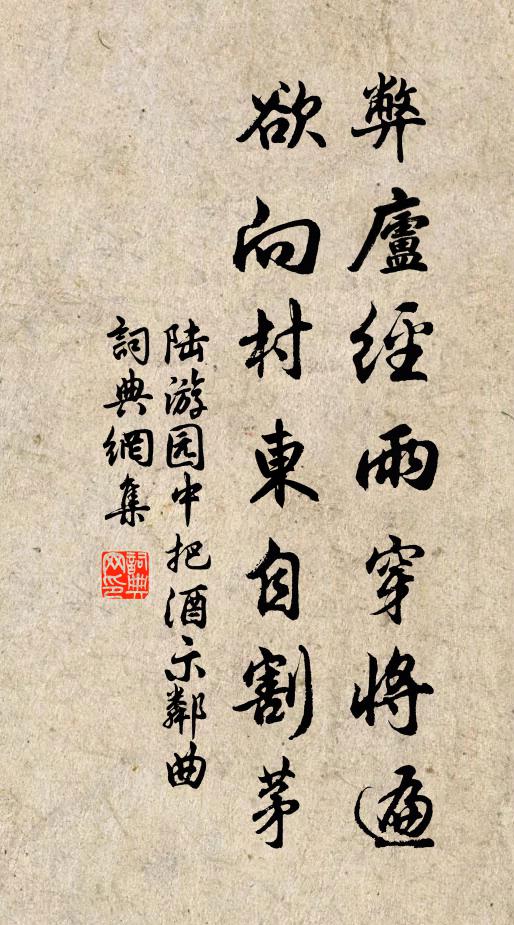 弊廬經雨穿將遍
欲向村東自割茅
陆游园中把酒示鄰曲
詞典網集
詞典网印